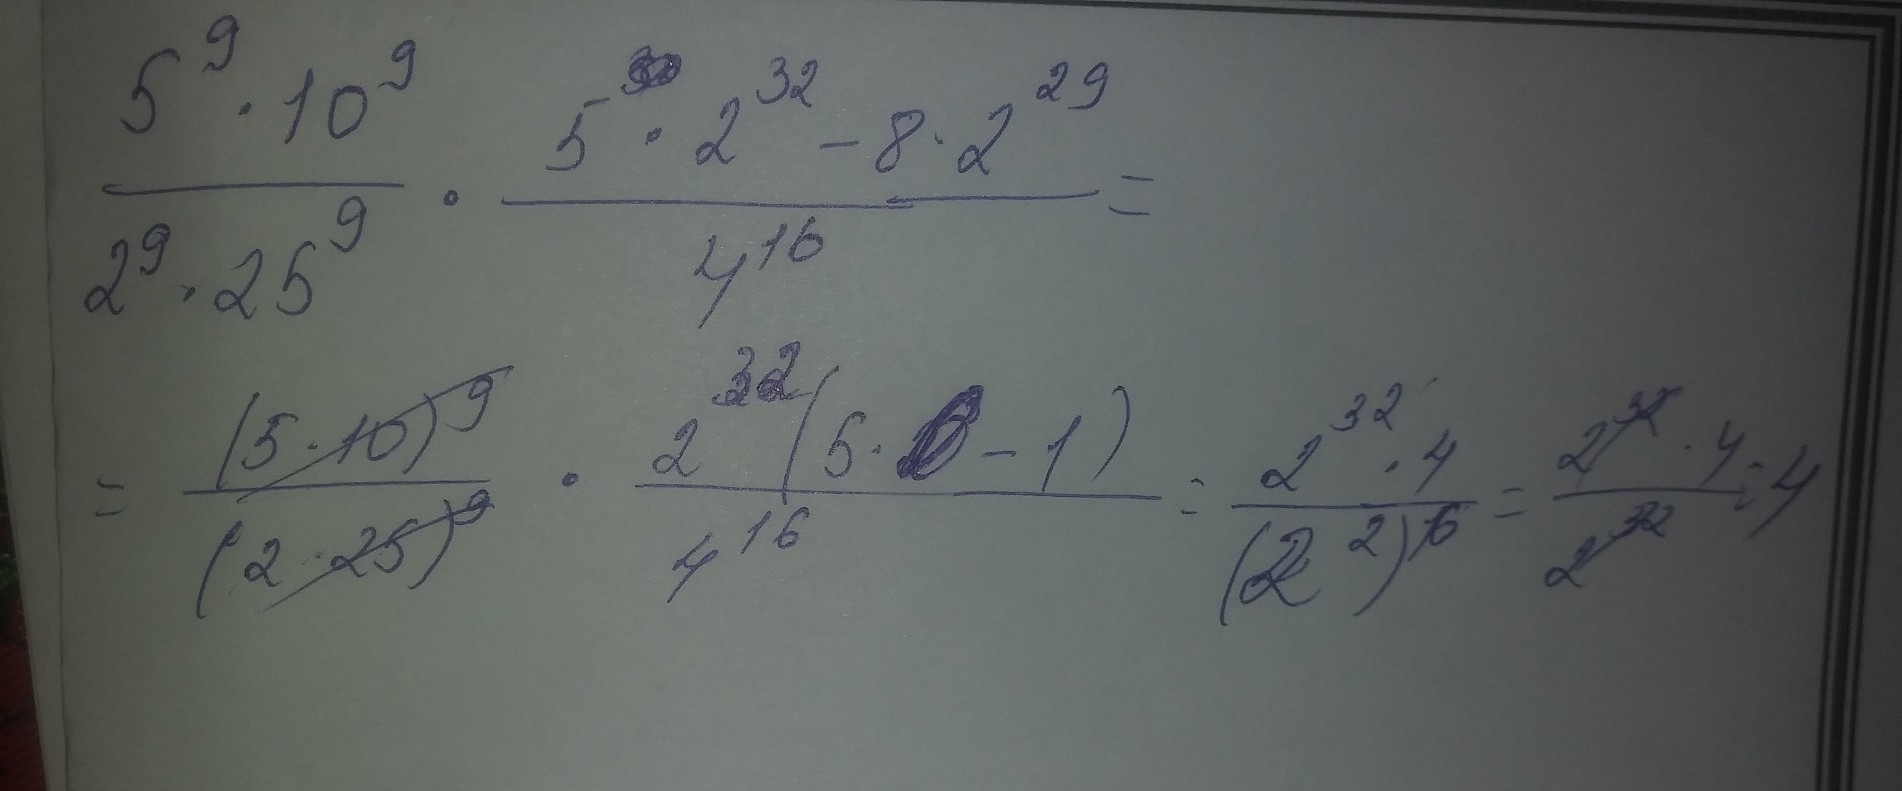 5⁹ · 10⁹ / 2⁹ · 25⁹ · 5 · 2³² - 8 · 2²⁹ / 4¹⁶ =
= (5 · 10)⁹ / (2 · 25)⁹ · 2³² (5 · - 1) / 4¹⁶ = 2³² · 4 / (2²)¹⁶ = 2³² · 4 / 2³² = 4